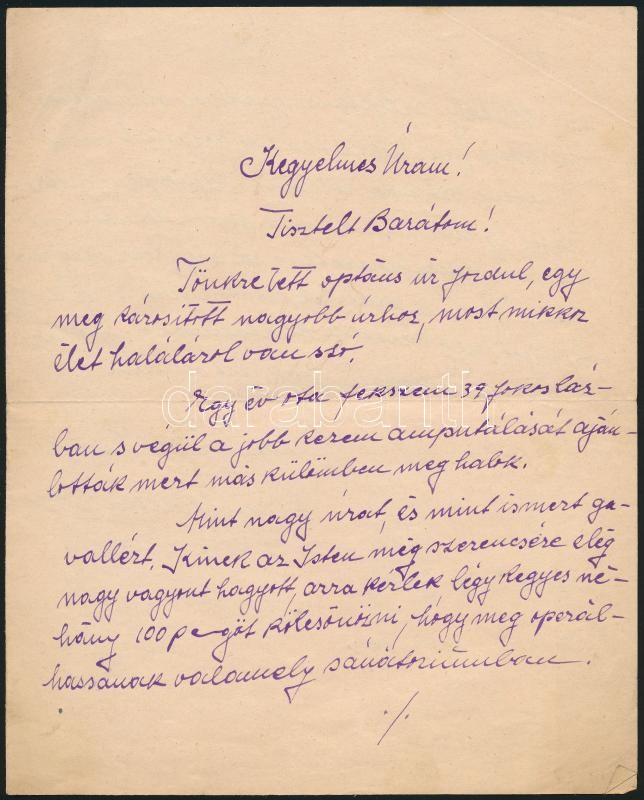 Kegyelmes Úram!
Tisztelt Barátom!
Tönkretett optáns úr fordul, egy
meg károsított nagyobb úrhoz, most mikkor
élet haláláról van szó.
Egy év óta fekszem 39 fokos láz-
ban s végül a jobb kezem amputálását aján-
lották mert más külömben meg halok.
Mint nagy úrat, és mint ismert ga-
vallért, Kinek az Isten még szerencsére elég
nagy vagyont hagyott, arra kérlek légy kegyes né-
hány 100 pe-göt kölcsönözni, hogy meg operál-
hassanak valamely sánátoriumban.
./.
darabanth